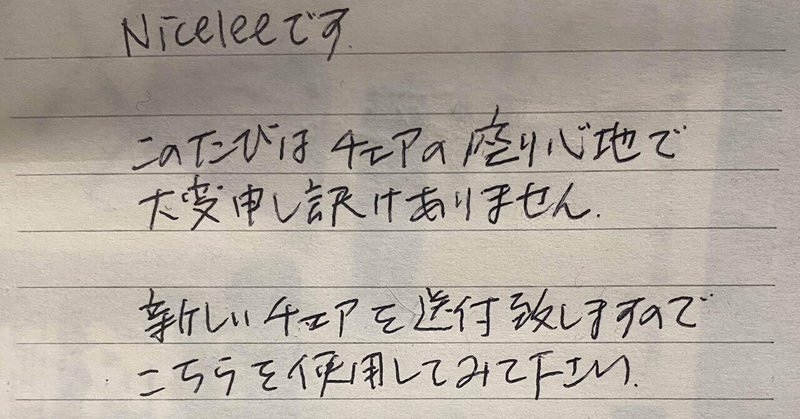 Niceleeです.
このたびはチェアの座り心地で
大変申し訳けありません.
新しいチェアを送付致しますので
こちらを使用してみて下さい.